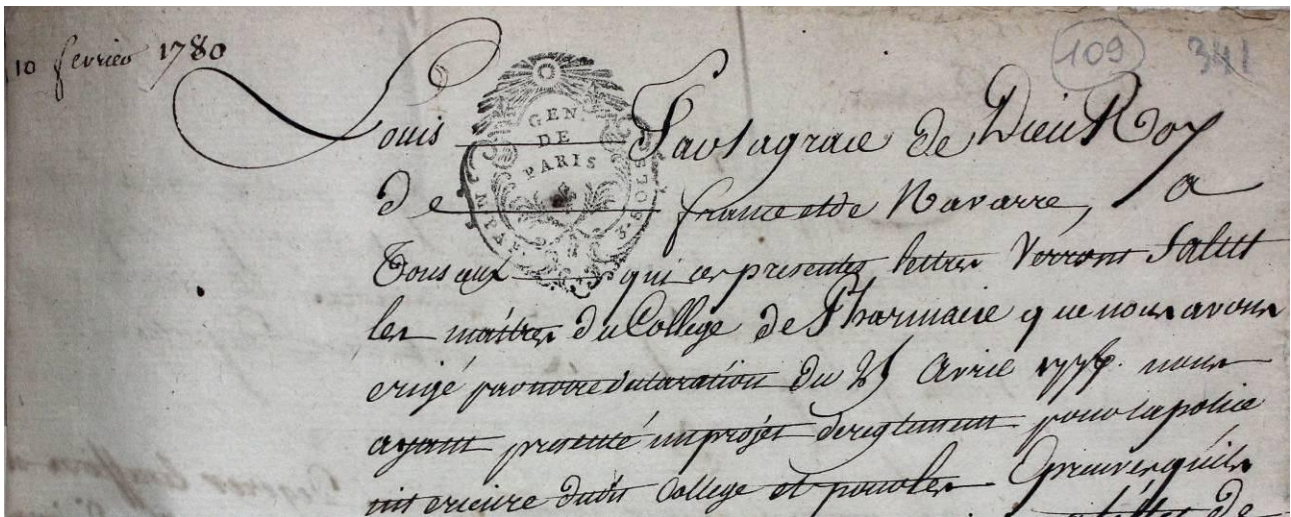 10 fevrier 1780
109
341
GEN. DE PARIS
M. PAR.
3. SOLS
Louis Par la grace de Dieu Roy
de france et de Navarre, a
Tous ceux qui ces presentes lettres Verront Salut
les maitres du College de Pharmacie que nous avons
erigé par notre declaration du 25 Avril 1777. nous
ayant presenté un projet de reglement pour la police
interieure dudit College et pour les Epreuves qu'ils
de